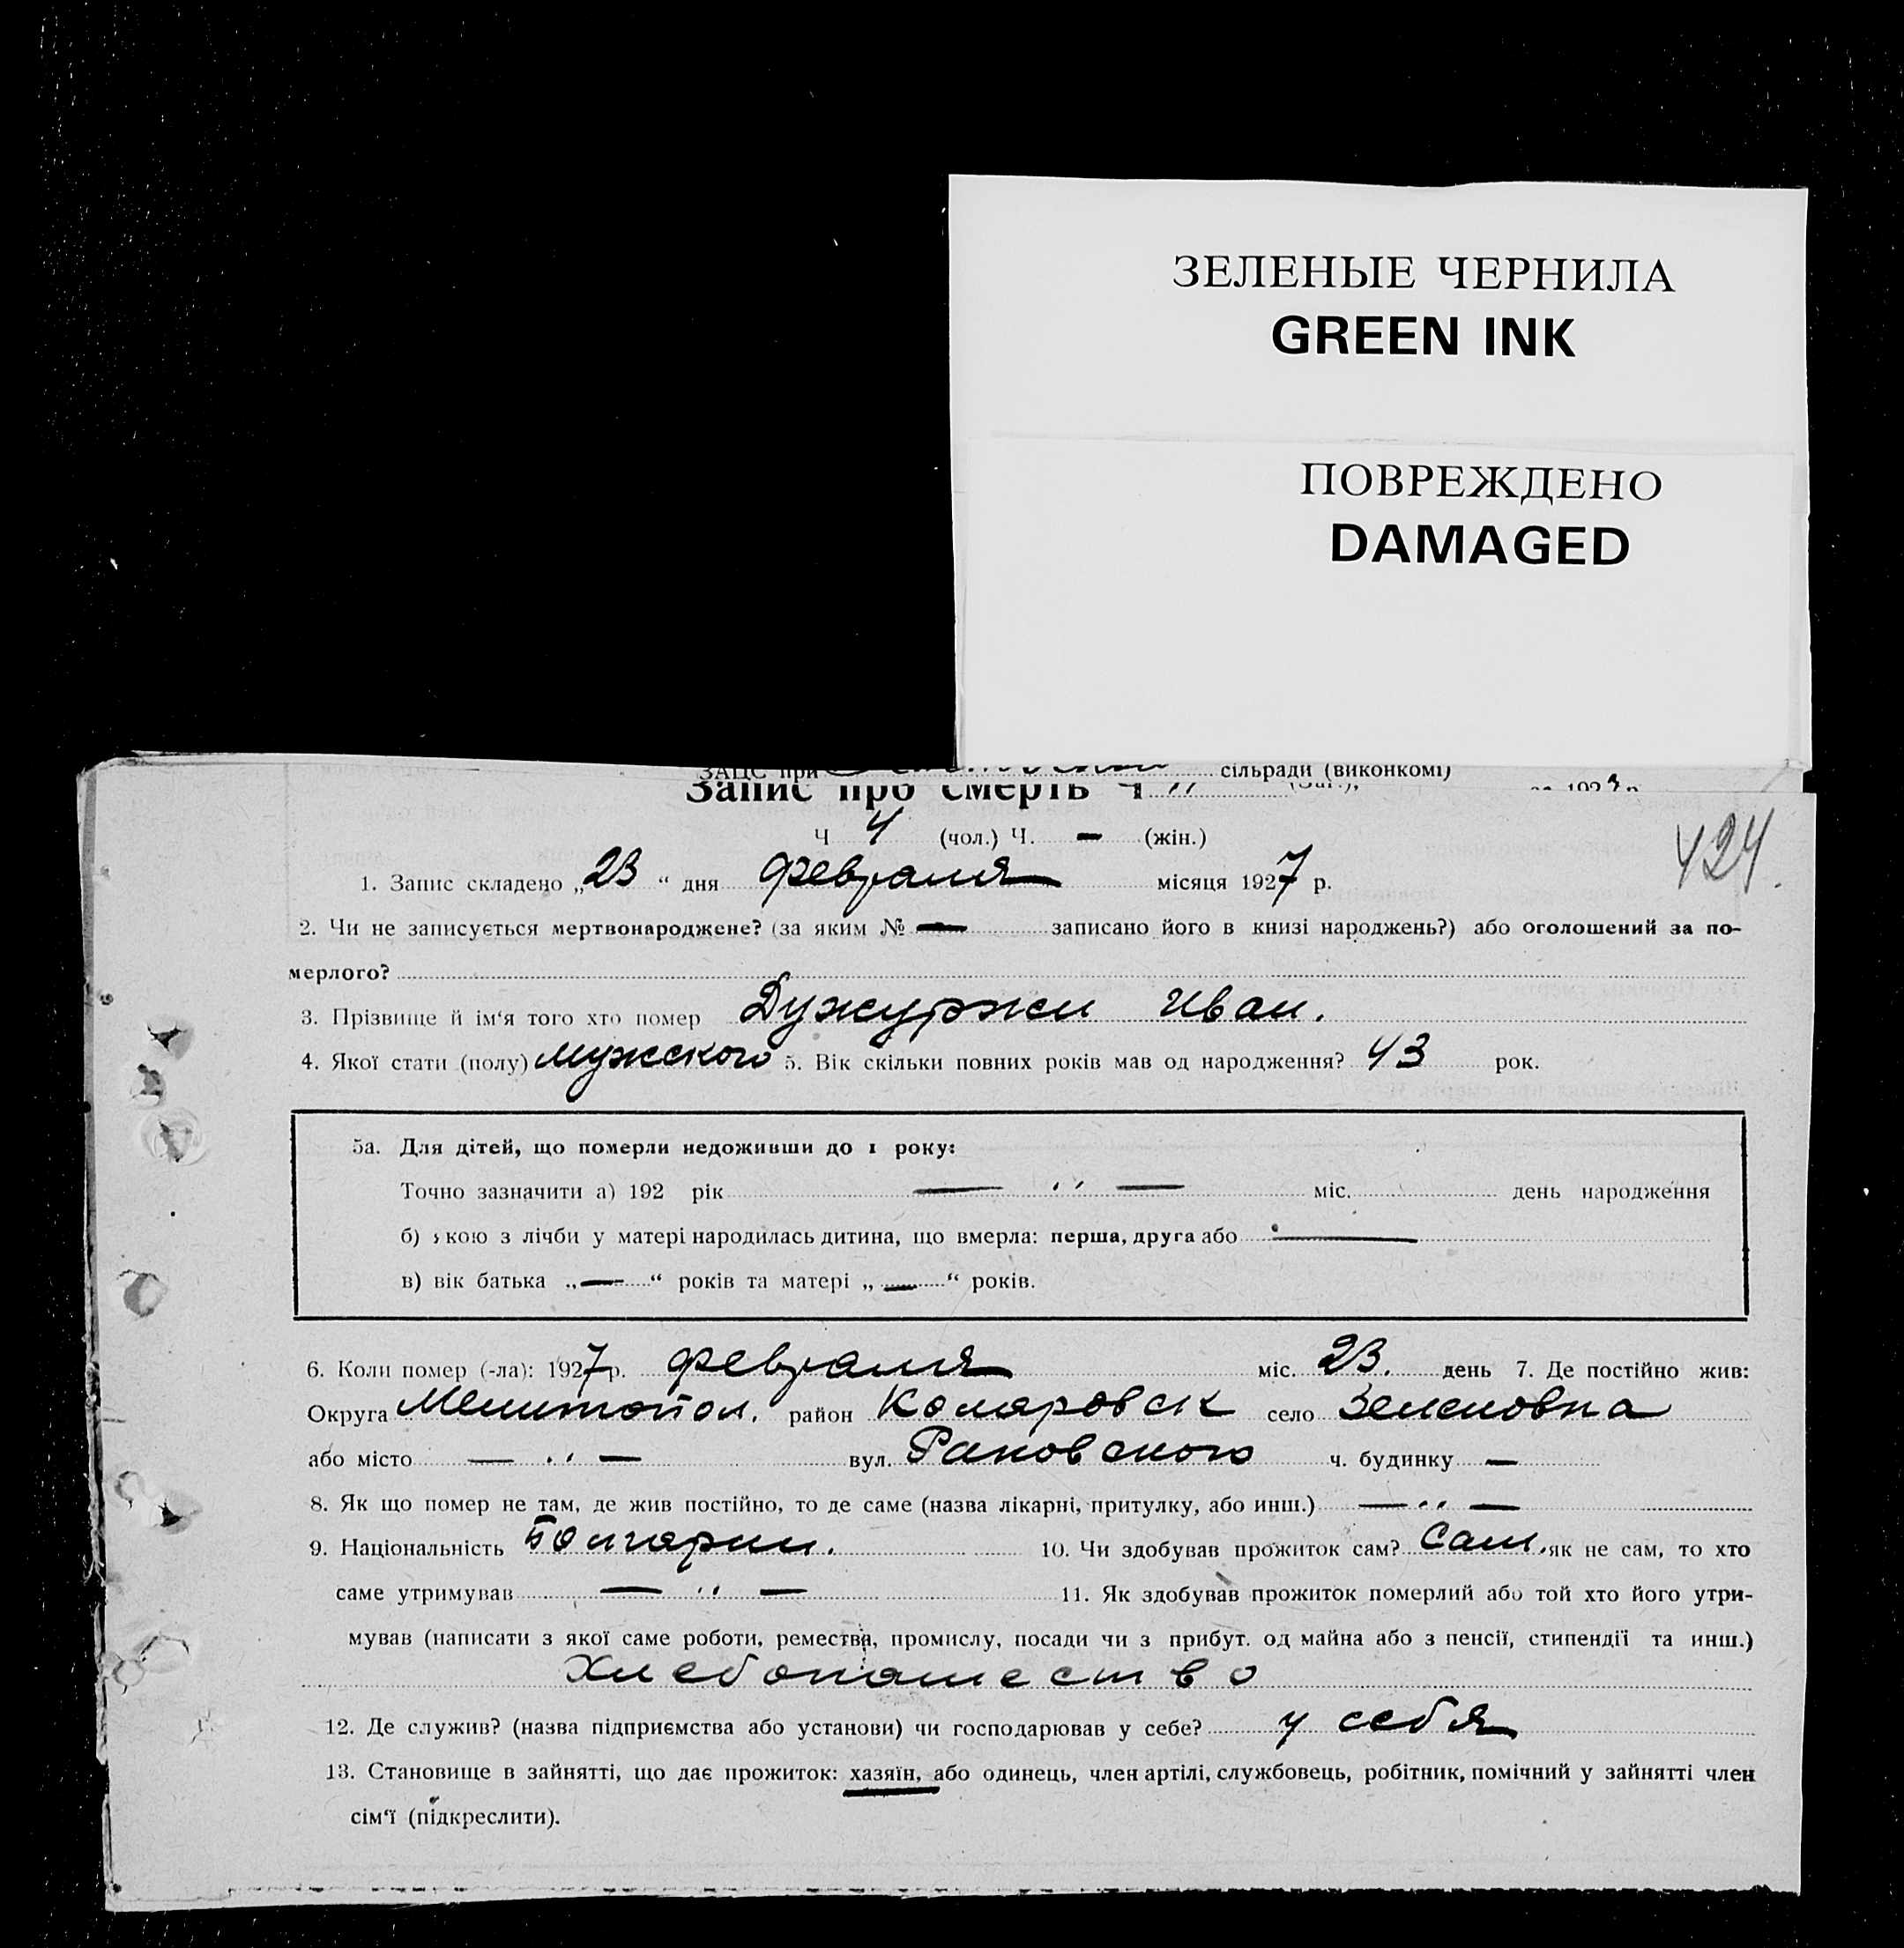 ЗЕЛЕНЫЕ ЧЕРНИЛА
GREEN INK
ПОВРЕЖДЕНО
DAMAGED
ЗАЦС при сільради (виконкомі)
Запис про смерть Ч
Ч 4 (чол.) Ч. — (жін.)
424.
1. Запис складено „23“ дня февраля місяця 1927 р.
2. Чи не записується мертвонароджене? (за яким № — записано його в книзі народжень?) або оголошений за по-
мерлого?
3. Прізвище й ім‘я того хто помер Дужуржи Иван.
4. Якої стати (полу) мужского 5. Вік скільки повних років мав од народження? 43 рок.
5а. Для дітей, що померли недоживши до 1 року:
Точно зазначити а) 192 рік — ,, — міс. день народження
б) якою з лічби у матері народилась дитина, що вмерла: перша, друга або —
в) вік батька „—“ років та матері „—“ років.
6. Коли помер (-ла): 1927 р. февраля міс. 23. день 7. Де постійно жив:
Округа Мелитопол. район Комаровск село Зеленовка
або місто — ,, — вул. Раковского ч. будинку —
8. Як що помер не там, де жив постійно, то де саме (назва лікарні, притулку, або инш.) — ,, —
9. Національність Болгарин. 10. Чи здобував прожиток сам? Сам. як не сам, то хто
саме утримував — ,, — 11. Як здобував прожиток померлий або той хто його утри-
мував (написати з якої саме роботи, ремества, промислу, посади чи з прибут. од майна або з пенсії, стипендії та инш.)
Хлебопашество
12. Де служив? (назва підприємства або установи) чи господарював у себе? у себя
13. Становище в зайнятті, що дає прожиток: хазяїн, або одинець, член артілі, службовець, робітник, помічний у зайнятті член
сім‘ї (підкреслити).